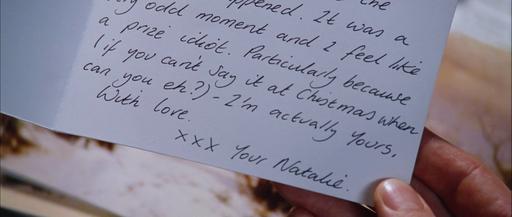 the
happened. It was a
very odd moment and I feel like
a prize idiot. Particularly because
(if you can't say it at Christmas when
can you eh?) - I'm actually yours.
With love.
xxx Your Natalie.